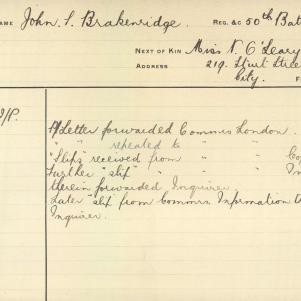 NAME John S. Brakenridge. REG. &C 50th Bat
NEXT OF KIN Miss N. O'Leary
ADDRESS 219. Sturt Stree
City. F
Letter forwarded Commrs London.
" repeated to " "
"Slip" received from " " Co
Further "slip" " " " In
therein forwarded Inquirer.
Later "slip" from Commrs. Information t
Inquirer.